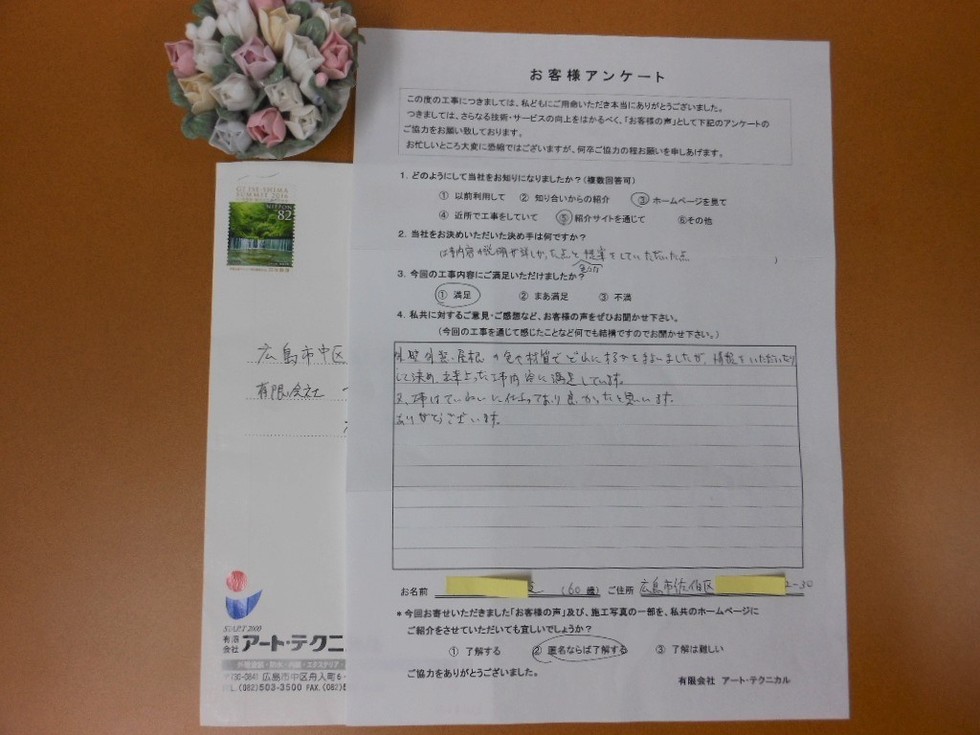 お客様アンケート
この度の工事につきましては、私どもにご用命いただき本当にありがとうございました。
つきましては、さらなる技術・サービスの向上をはかるべく、「お客様の声」として下記のアンケートの
ご協力をお願い致しております。
お忙しいところ大変に恐縮ではございますが、何卒ご協力の程お願いを申しあげます。
1. どのようにして当社をお知りになりましたか?(複数回答可)
① 以前利用して ② 知り合いからの紹介 ③ ホームページを見て
④ 近所で工事をしていて ⑤ 紹介サイトを通じて ⑥その他
2. 当社をお決めいただいた決め手は何ですか?
工事内容の説明が詳しかった点と提案をしていただいた点
3. 今回の工事内容にご満足いただけましたか?
① 満足 ② まあ満足 ③ 不満
4. 私共に対するご意見・ご感想など、お客様の声をぜひお聞かせ下さい。
(今回の工事を通じて感じたことなど何でも結構ですのでお聞かせ下さい。)
外壁 屋根の色や材質でどれにするかをまよいましたが、情報をいただいたり
して決め、工事内容に満足しています。
又、工事はていねいに仕上っており良かったと思います。
ありがとうございます。
お名前 (60歳) ご住所 広島市佐伯区 2-30
*今回お寄せいただきました「お客様の声」及び、施工写真の一部を、私共のホームページに
ご紹介をさせていただいても宜しいでしょうか?
① 了解する ② 匿名ならば了解する ③ 了解は難しい
ご協力をありがとうございました。
有限会社 アート・テクニカル
SUMMIT 2016
NIPPON
82
広島市中区
有限会社
START 2000
有限会社 アート・テクニ
外壁塗装・防水・内装・エクステリア
〒730-0841 広島市中区舟入町6-
TEL.(082)503-3500 FAX.(082)5